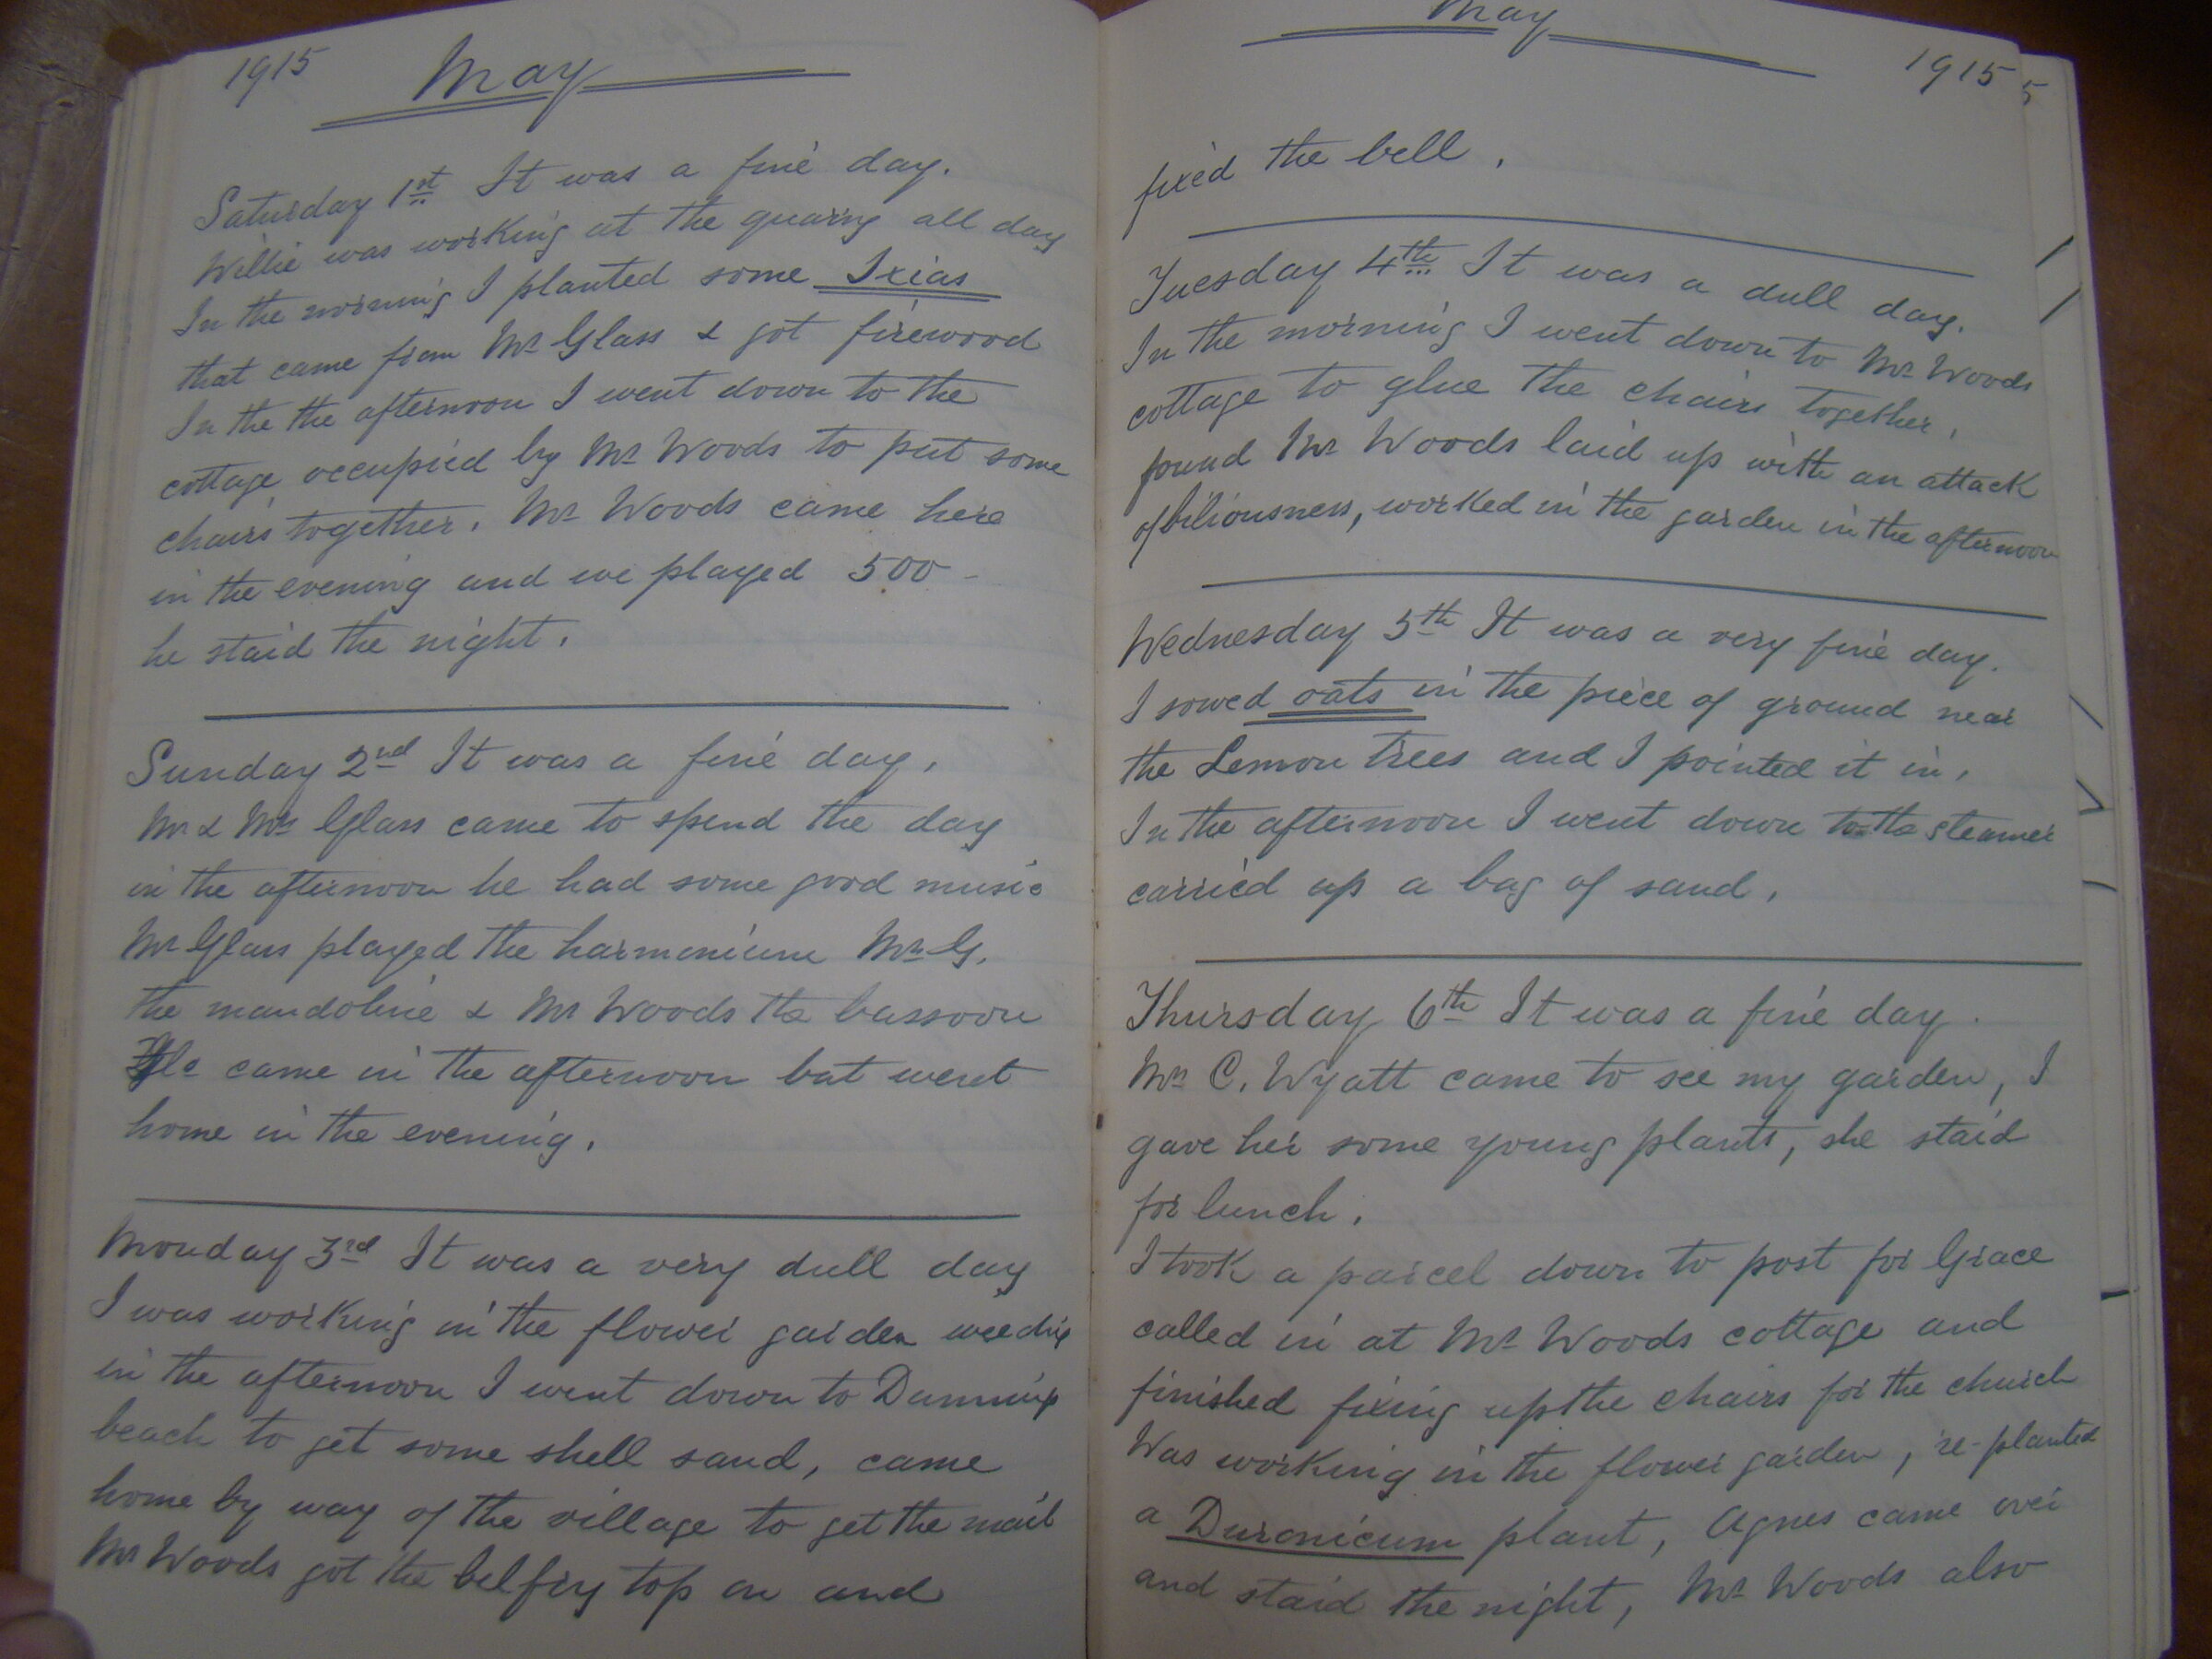 1915 May
Saturday 1st It was a fine day.
Willie was working at the quarry all day
In the morning I planted some Ixias
that came from Mr Glass & got firewood
In the the afternoon I went down to the
cottage occupied by Mr Woods to put some
chairs together. Mr Woods came here
in the evening and we played 500 -
he staid the night.
Sunday 2nd It was a fine day.
Mr & Mrs Glass came to spend the day
in the afternoon he had some good music
Mr Glass played the harmonium Mrs G.
the mandoline & Mr Woods the bassoon
He came in the afternoon but went
home in the evening.
Monday 3rd It was a very dull day
I was working in the flower garden weeding
in the afternoon I went down to
beach to get some shell sand, came
home by way of the village to get the mail
Mr Woods got the belfry top on and
May 1915
fixed the bell.
Tuesday 4th It was a dull day.
In the morning I went down to Mr Woods
cottage to glue the chairs together,
found Mr Woods laid up with an attack
of biliousness, worked in the garden in the afternoon
Wednesday 5th It was a very fine day.
I sowed oats in the piece of ground near
the Lemon trees and I pointed it in.
In the afternoon I went down to the steamer
carried up a bag of sand.
Thursday 6th It was a fine day.
Mrs C. Wyatt came to see my garden, I
gave her some young plants, she staid
for lunch.
I took a parcel down to post for Grace
called in at Mr Woods cottage and
finished fixing up the chairs for the church
Was working in the flower garden, re-planted
a Duronicum plant, Agnes came over
and staid the night, Mr Woods also